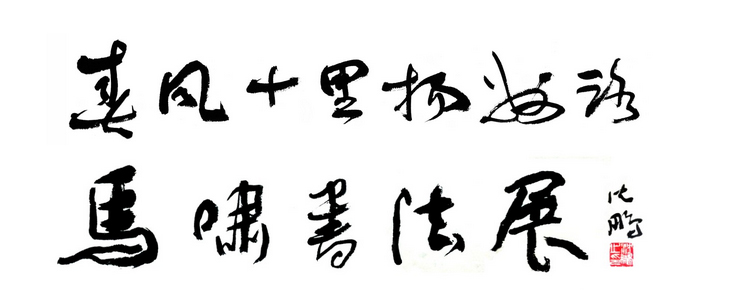 春风十里扬州路
馬嘯書法展
沈鹏